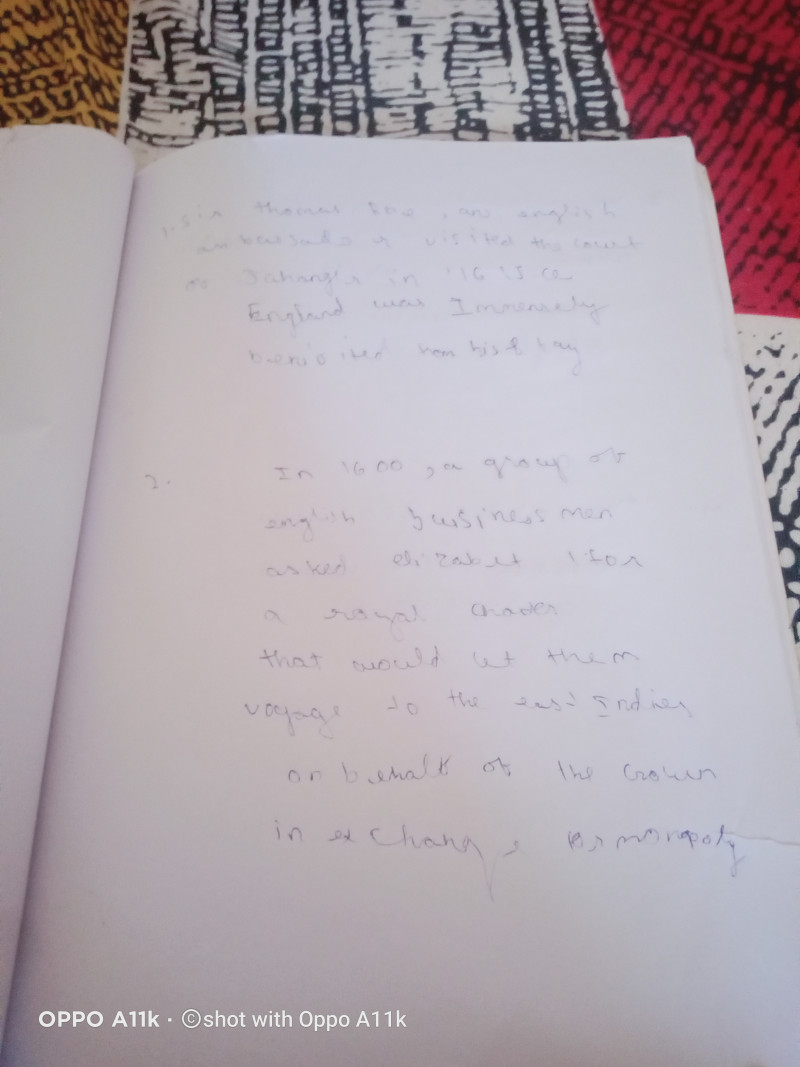 1. Sir thomas Roe, an english
ambassado r visited the court
of Jahangir in 1615 ce
England was Immensely
from his stay
2. In 1600, a group of
english businessmen
asked elizabet I for
a royal
that would let them
voyage to the east Indies
on behalf of the crown
in exchange for monopoly
OPPO A11k · ©shot with Oppo A11k